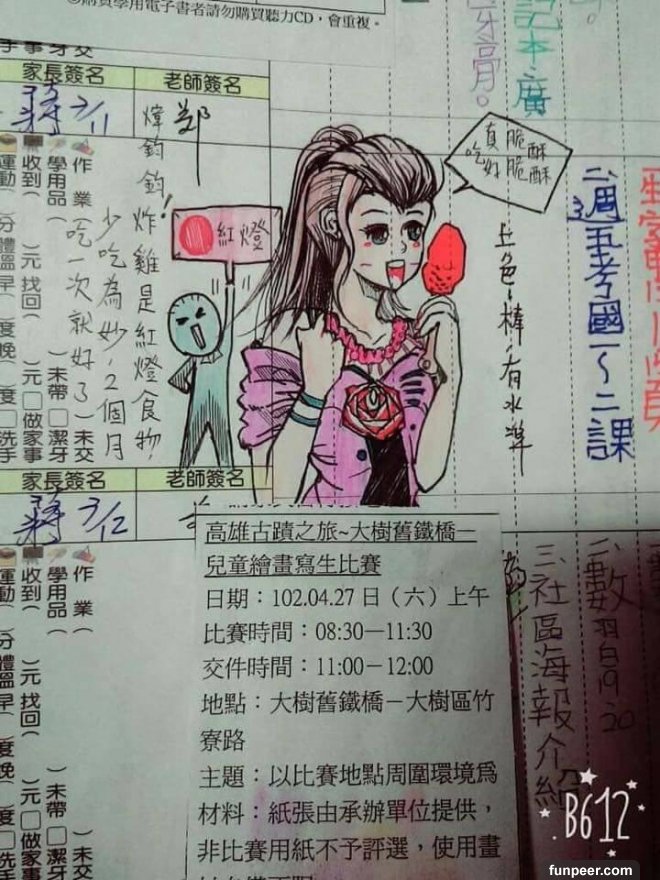 ⊙購買學用電子書者請勿購買聽力CD，會重複。
牙膏。
記本、廣
家長簽名
老師簽名
蔣 3/11
鄭
煒鈞鈞！炸雞是紅燈食物
少吃為妙，2個月
吃一次就好了
紅燈
真脆酥
吃好脆酥
上色！棒！有水準
二、週五考國一～二課
作業（
學用品（
收到（ ）元 找回（
運動（
）未交
）未帶 □潔牙
）元 □做家事
□洗手
家長簽名
老師簽名
蔣 3/12
作業（
學用品（
收到（ ）元 找回（
運動（
）未交
）未帶 □潔牙
）元 □做家事
□洗手
高雄古蹟之旅~大樹舊鐵橋－
兒童繪畫寫生比賽
日期：102.04.27日（六）上午
比賽時間：08:30－11:30
交件時間：11:00－12:00
地點：大樹舊鐵橋－大樹區竹
寮路
主題：以比賽地點周圍環境為
材料：紙張由承辦單位提供，
非比賽用紙不予評選，使用畫
二、數習白19、20
三、社區海報介紹
B612
funpeer.com